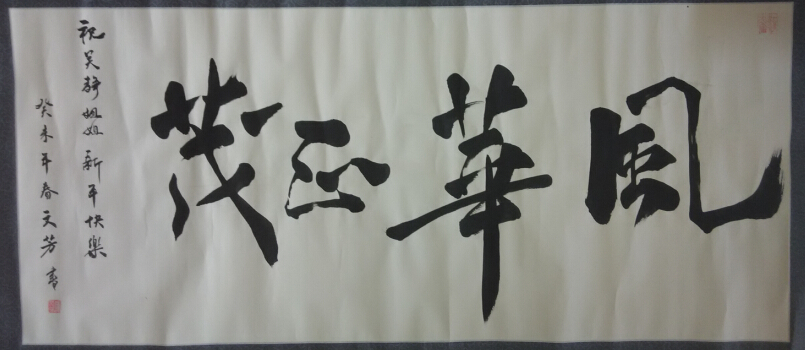 風華正茂
祝吴静姐姐新年快樂
癸未年春文芳書